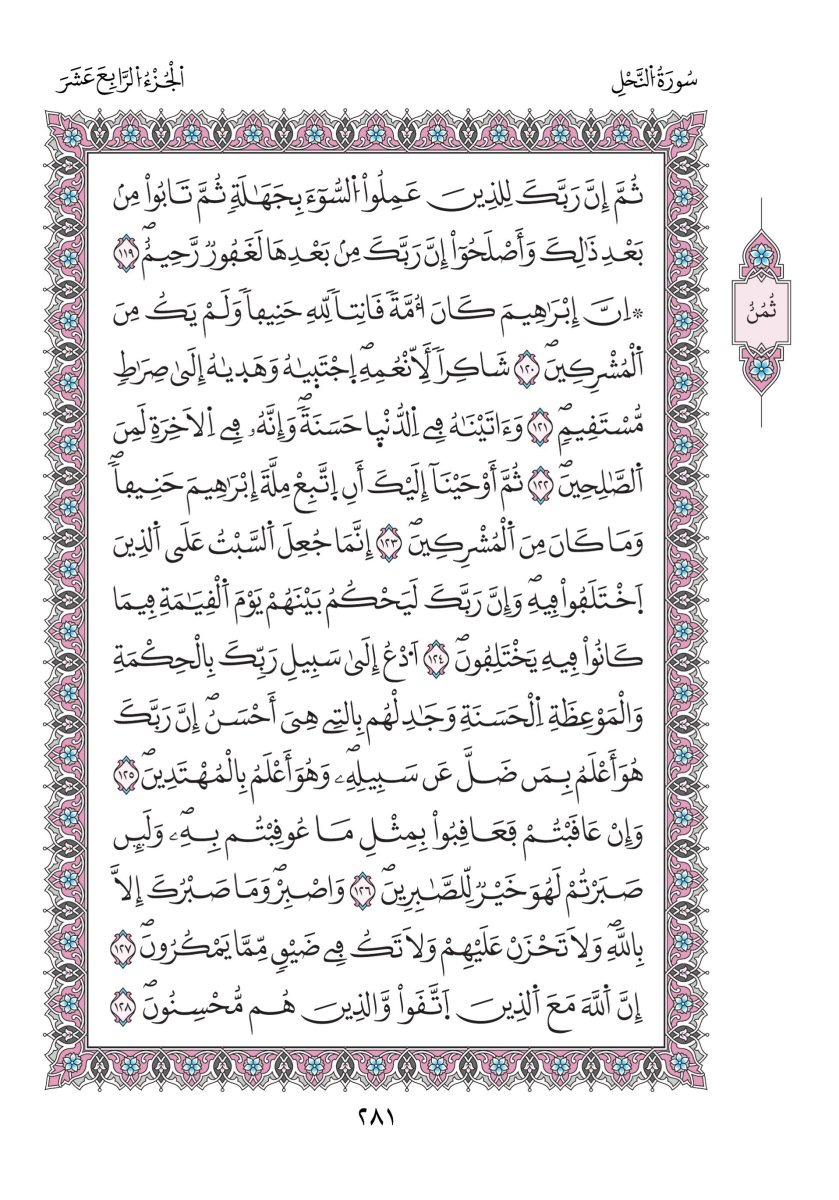 سُورَةُ اُ۬لنَّحْلِ
اُ۬لْجُزْءُ اُ۬لرَّابِعَ عَشَرَ
ثُمَّ إِنَّ رَبَّكَ لِلذِينَ عَمِلُواْ اُ۬لسُّوٓءَ بِجَهَٰلَةٖ ثُمَّ تَابُواْ مِنۢ
بَعْدِ ذَٰلِكَ وَأَصْلَحُوٓاْ إِنَّ رَبَّكَ مِنۢ بَعْدِهَا لَغَفُورٞ رَّحِيمٌۖ ١١٩
۞اِنَّ إِبْرَٰهِيمَ كَانَ أُمَّةٗ قَانِتاٗ لِّلهِ حَنِيفاٗ وَلَمْ يَكُ مِنَ
ثُمُنُ
اَ۬لْمُشْرِكِينَۖ ١٢٠ شَاكِراٗ لَّأَنْعُمِهِۖ اِ۪جْتَب۪يٰهُ وَهَد۪يٰهُ إِلَىٰ صِرَٰطٖ
مُّسْتَقِيمٖۖ ١٢١ وَءَاتَيْنَٰهُ فِے اِ۬لدُّنْي۪ا حَسَنَةٗۖ وَإِنَّهُۥ فِے اِ۬لَاخِرَةِ لَمِنَ
اَ۬لصَّٰلِحِينَۖ ١٢٢ ثُمَّ أَوْحَيْنَآ إِلَيْكَ أَنِ اِ۪تَّبِعْ مِلَّةَ إِبْرَٰهِيمَ حَنِيفاٗۖ
وَمَا كَانَ مِنَ اَ۬لْمُشْرِكِينَۖ ١٢٣ إِنَّمَا جُعِلَ اَ۬لسَّبْتُ عَلَى اَ۬لذِينَ
اَ۪خْتَلَفُواْ فِيهِۖ وَإِنَّ رَبَّكَ لَيَحْكُمُ بَيْنَهُمْ يَوْمَ اَ۬لْقِيَٰمَةِ فِيمَا
كَانُواْ فِيهِ يَخْتَلِفُونَۖ ١٢٤ اَ۟دْعُ إِلَىٰ سَبِيلِ رَبِّكَ بِالْحِكْمَةِ
وَالْمَوْعِظَةِ اِ۬لْحَسَنَةِ وَجَٰدِلْهُم بِالتِے هِيَ أَحْسَنُۖ إِنَّ رَبَّكَ
هُوَ أَعْلَمُ بِمَن ضَلَّ عَن سَبِيلِهِۦۖ وَهُوَ أَعْلَمُ بِالْمُهْتَدِينَۖ ١٢٥
وَإِنْ عَاقَبْتُمْ فَعَاقِبُواْ بِمِثْلِ مَا عُوقِبْتُم بِهِۦۖ وَلَئِن
صَبَرْتُمْ لَهُوَ خَيْرٞ لِّلصَّٰبِرِينَۖ ١٢٦ وَاصْبِرْۖ وَمَا صَبْرُكَ إِلَّا
بِاللَّهِۖ وَلَا تَحْزَنْ عَلَيْهِمْ وَلَا تَكُ فِے ضَيْقٖ مِّمَّا يَمْكُرُونَۖ ١٢٧
إِنَّ اَ۬للَّهَ مَعَ اَ۬لذِينَ اَ۪تَّقَواْ وَّالذِينَ هُم مُّحْسِنُونَۖ ١٢٨
٢٨١